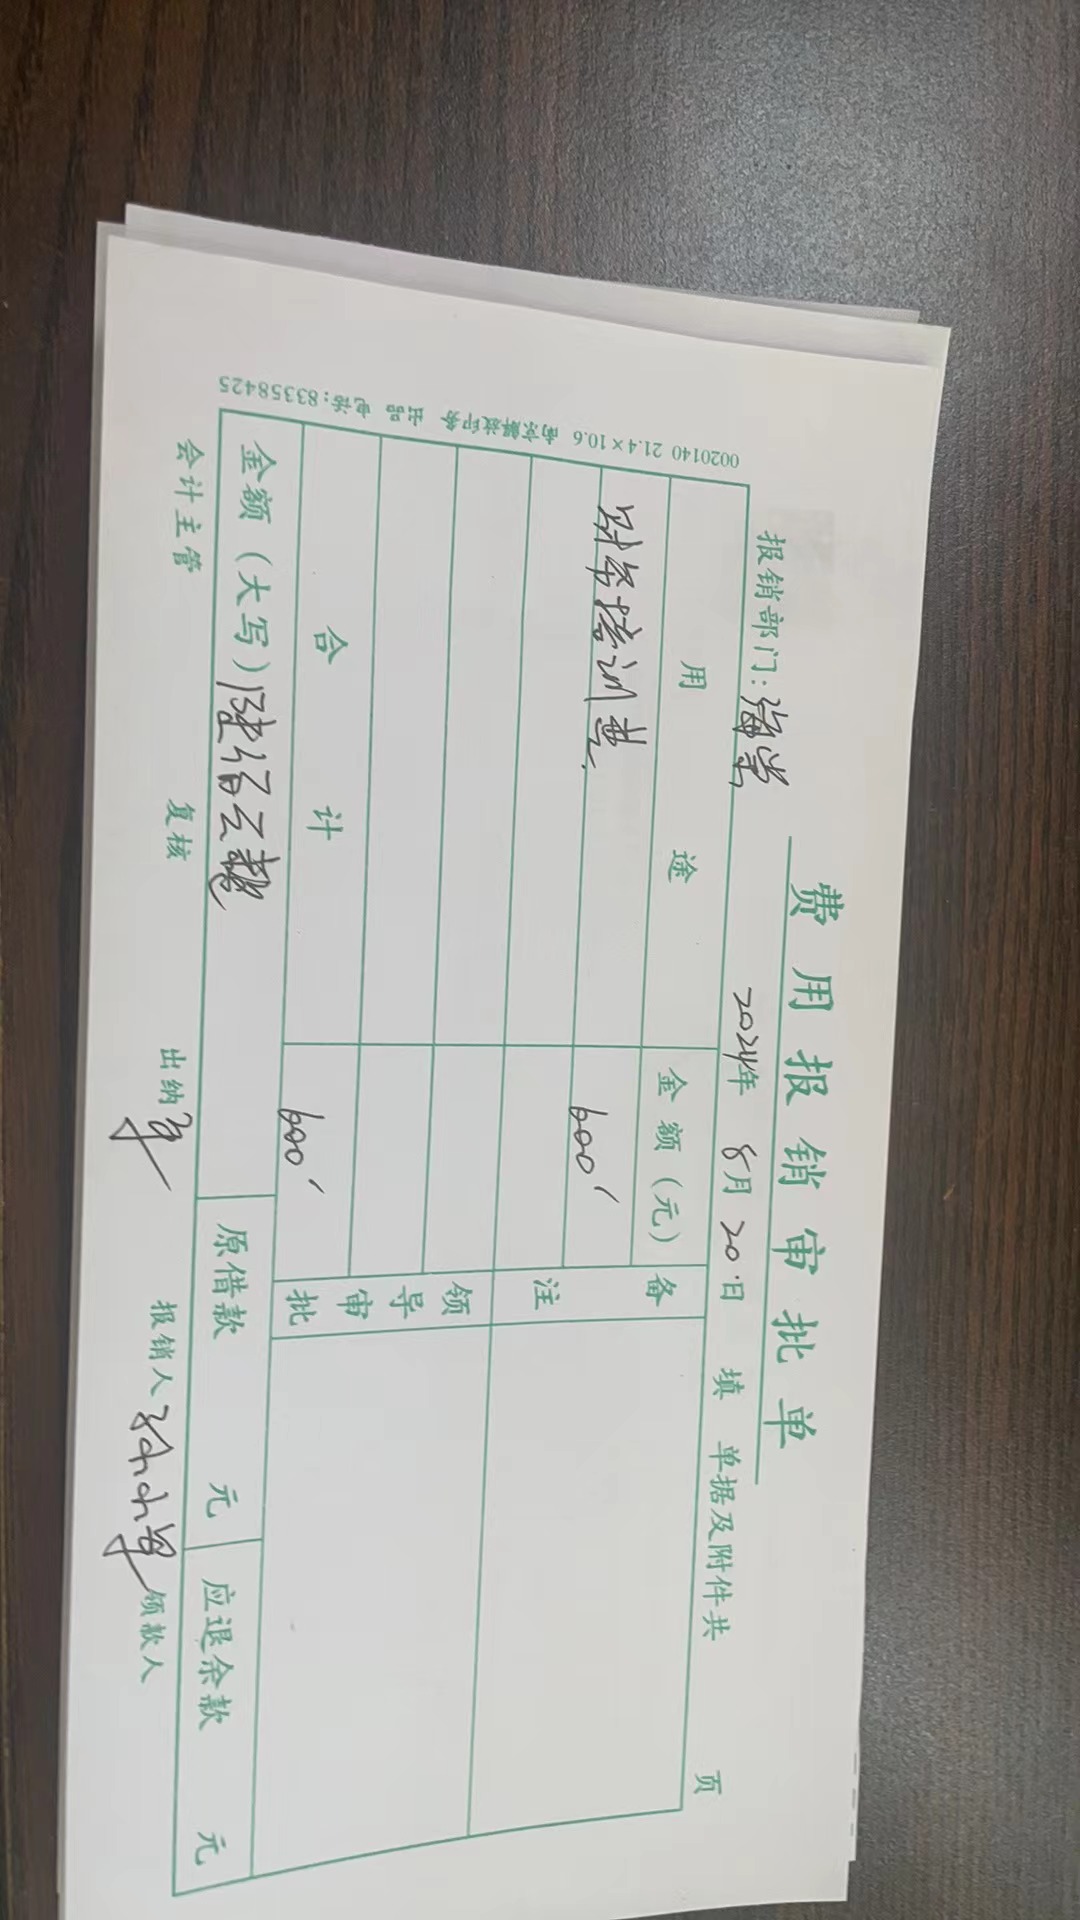 费用报销审批单
报销部门：海棠 2024年 8月 20日 填 单据及附件共 页
用途 金额（元） 备注
财务培训费 600
领导审批
合计 600
金额（大写）陆佰元整 原借款 元 应退余款 元
会计主管 复核 出纳 报销人 领款人
0020140 21.4×10.6 南京解放印务 出品 电话：83358425